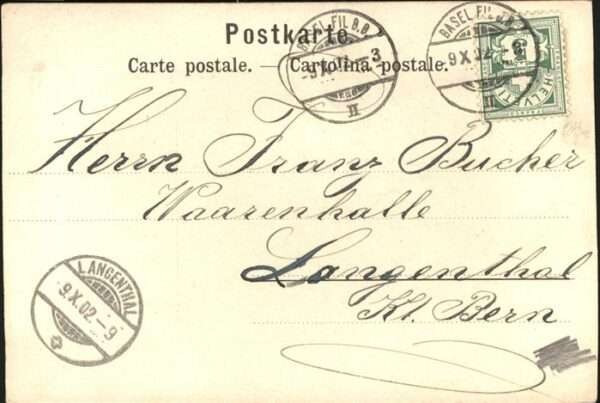 Postkarte.
Carte postale. — Cartolina postale.
BASEL FIL B.B.
9 X 3
II
BASEL FIL B.B.
9 X 02 - 3
II
HELVETIA
Herrn Franz Bucher
Waarenhalle
Langenthal
Kt. Bern
LANGENTHAL
9.X.02.-9